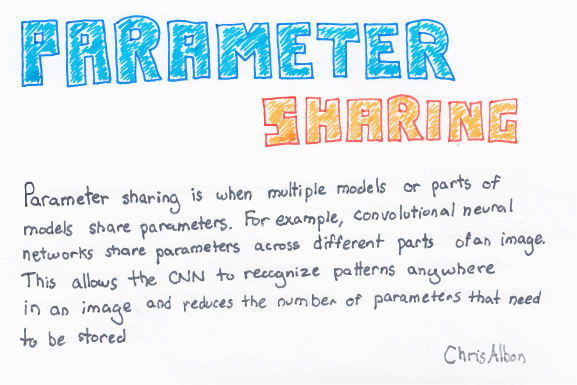 PARAMETER
SHARING
Parameter sharing is when multiple models or parts of
models share parameters. For example, convolutional neural
networks share parameters across different parts of an image.
This allows the CNN to recognize patterns anywhere
in an image and reduces the number of parameters that need
to be stored
Chris Albon